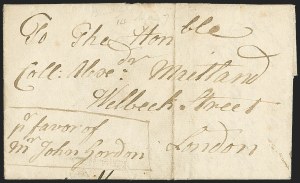 To The Honble
Coll: Alexdr Maitland
Welbeck Street
London
pr favor of
Mr John Gordon